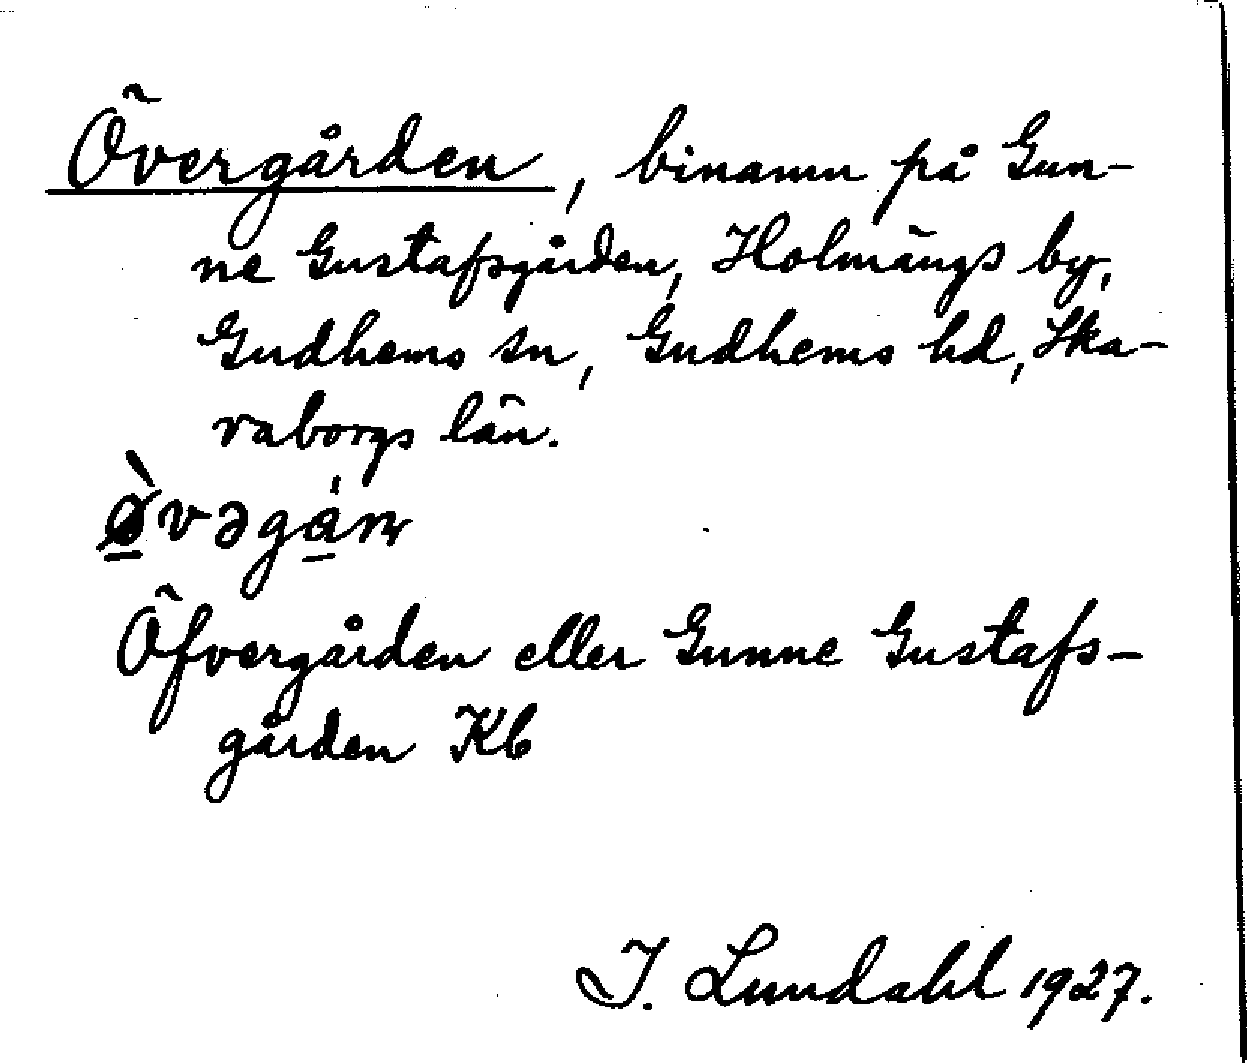 Övergården, binamn på Gun-
ne Gustafsgården, Holmängs by,
Gudhems sn, Gudhems hd, Ska-
raborgs län.
Öfvergården eller Gunne Gustafs-
gården Kb
I. Lundahl 1927.